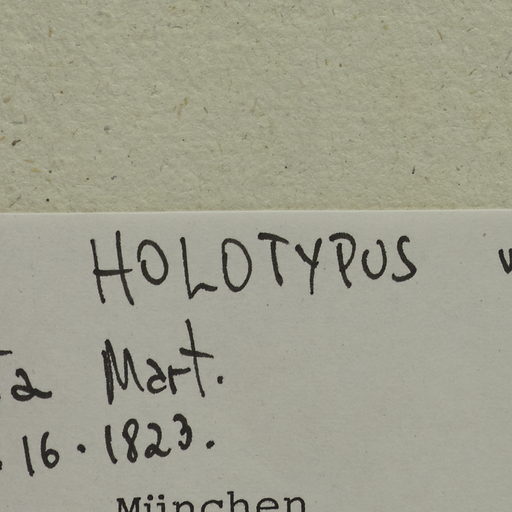 HOLOTYPUS
Mart.
16. 1823.
München